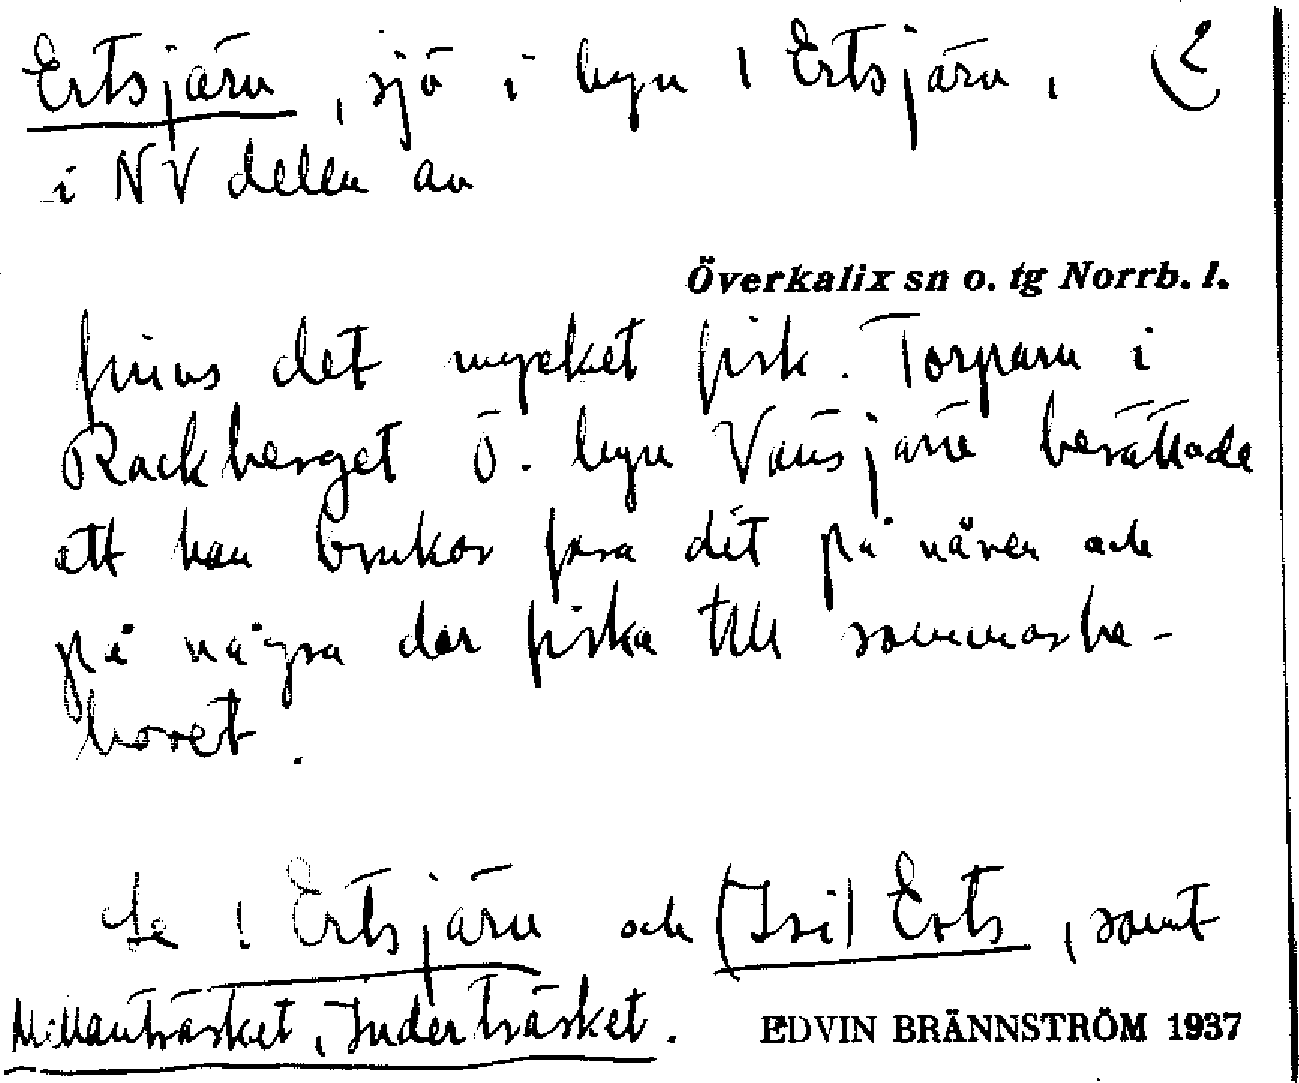 Ertsjärv, sjö i byn ! Ertsjärv,
i NV delen av
Överkalix sn o. tg Norrb. l.
finns det mycket fisk. Torparn i
Rackberget Ö. byn Vänsjärv berättade
att han brukar fara dit på våren och
på några dar fiska till sommarbe-
hovet.
Se ! Ertsjärv och (Isi) Erts, samt
Mellanträsket, Inderträsket.
EDVIN BRÄNNSTRÖM 1937